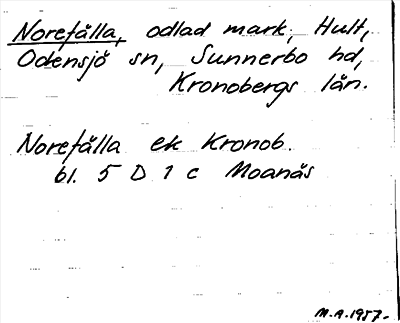 Norefålla, odlad mark, Hult,
Odensjö sn, Sunnerbo hd,
Kronobergs län.
Norefålla ek Kronob.
bl. 5 D 1 c Moanäs
M.A. 1957.